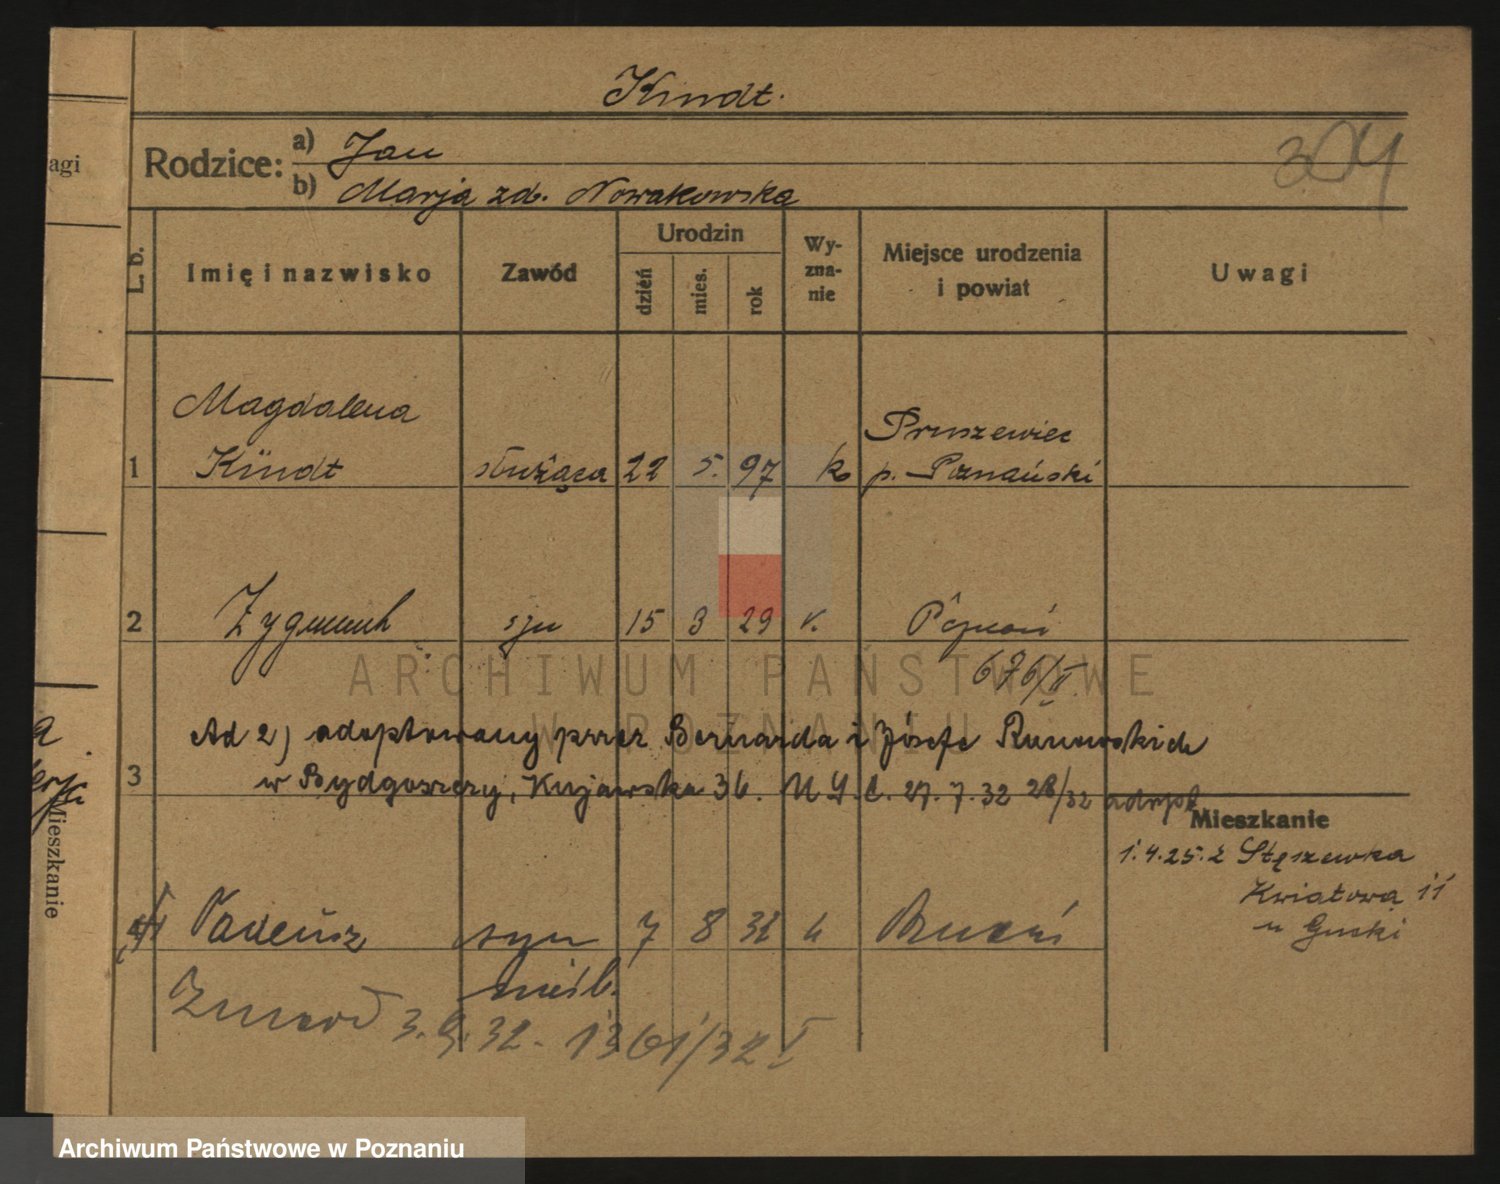 Kindt.
304
Rodzice:
a) Jan
b) Marja zd. Nowakowska
L. b.
Imię i nazwisko
Zawód
Urodzin
dzień
mies.
rok
Wy-
zna-
nie
Miejsce urodzenia
i powiat
Uwagi
Magdalena
Pruszewiec
1 Kindt służąca 22 5. 97 k p. Poznański
2 Zygmunt syn 15 3 29 Poznań
676/II
Ad 2) adoptowany przez Bernarda i Józefę Runowskich
3 w Bydgoszczy, Kujawska 36. 27.7.32 28/32 adopt.
Mieszkanie
1.4.25. z Stęszewka
Kwiatowa 11
u Gucki
4 Tadeusz syn 7 8 32 k Poznań
nieśl.
Zmarł 3.9.32. 1361/32 I
agi
Mieszkanie
ARCHIWUM PAŃSTWOWE
W POZNANIU
Archiwum Państwowe w Poznaniu